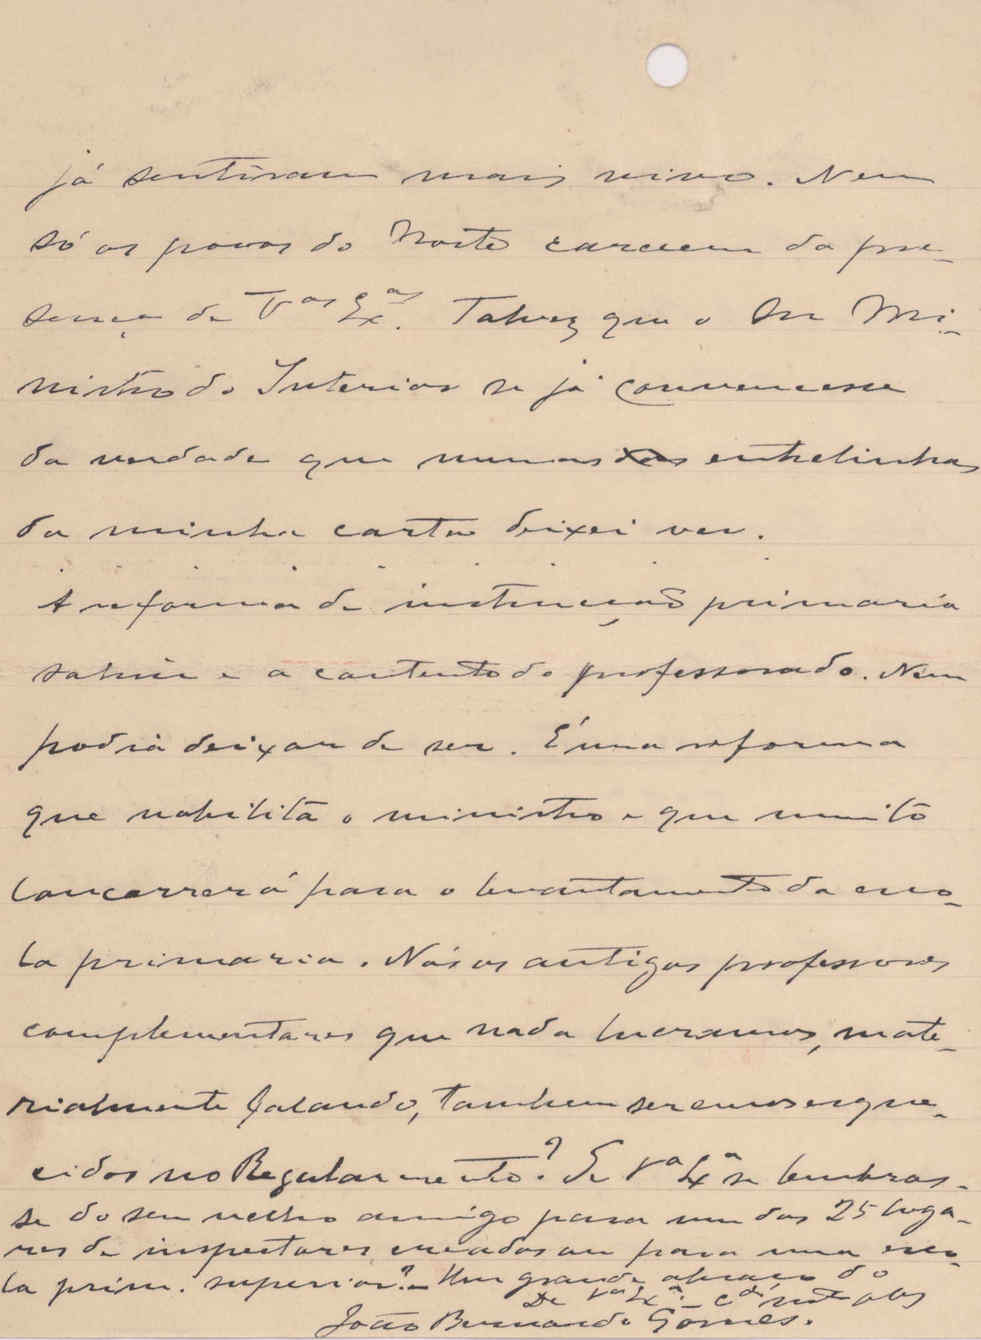 já sentiram mais vivo. Nem
só os povos do Norte carecem da pre-
sença de Vas Exas. Talvez que o Snr Mi-
nistro do Interior se já convencesse
da verdade que numas entrelinhas
da minha carta deixei ver.
A reforma de instrucção primaria
sahiu e a contento do professorado. Nem
podia deixar de ser. É uma reforma
que nobilita o ministro e que muito
concorrerá para o levantamento da esco-
la primaria. Nós os antigos professores
complementares que nada lucramos, mate-
rialmente falando, tambem seremos esque-
cidos no Regulamento? Se Va Exa se lembras-
se do seu velho amigo para um dos 25 loga-
res de inspectores creados ou para uma esco-
la prim. superior? – Um grande abraço do
De Va Exa – cdo
João Bernardo Gomes.